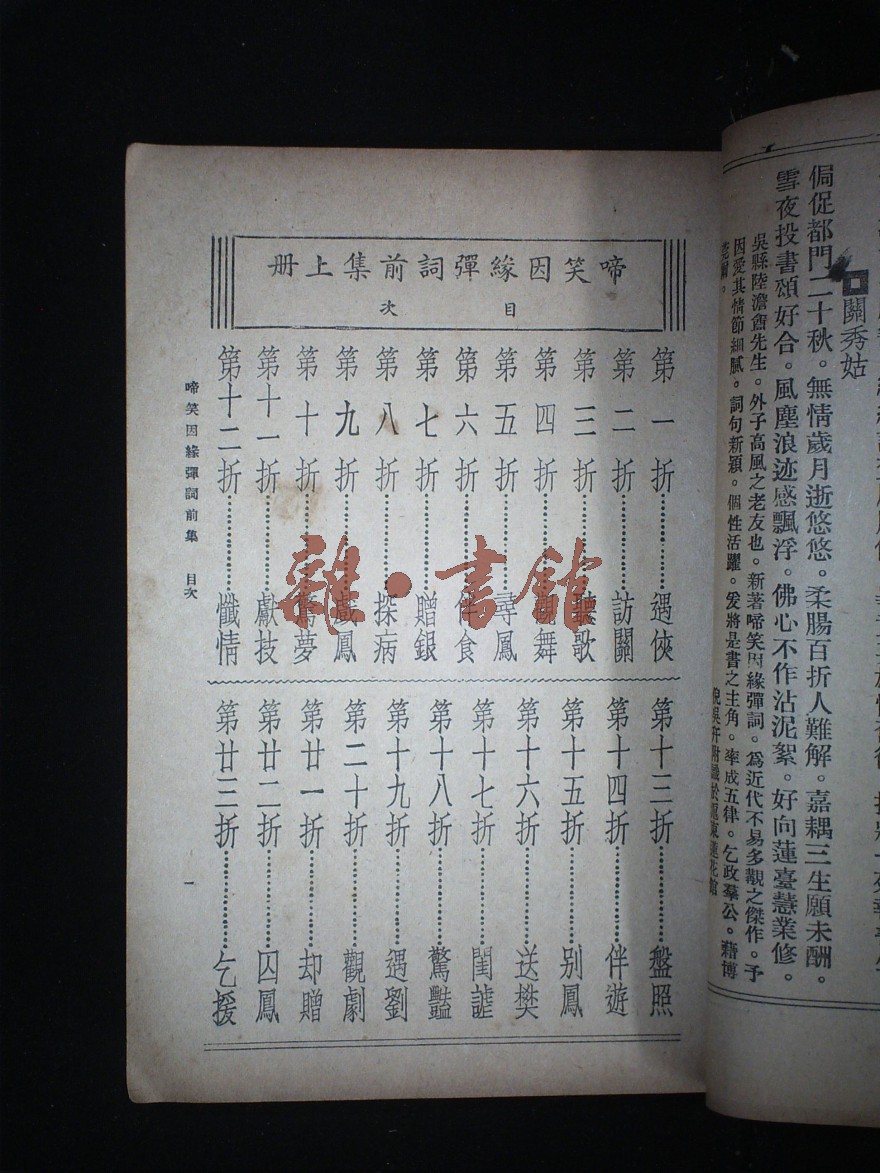 侷促都門二十秋。無情歲月逝悠悠。柔腸百折人難解。嘉耦三生願未酬。
雪夜投書頌好合。風塵浪迹感飄浮。佛心不作沾泥絮。好向蓮臺慧業修。
關秀姑
吳縣陸澹盦先生。外子高風之老友也。新著啼笑因緣彈詞。爲近代不易多覯之傑作。予
因愛其情節細膩。詞句新穎。個性活躍。爰將是書之主角。率成五律。乞政羣公。藉博
啼笑因緣彈詞前集上册
目次
第一折………遇俠
第二折………訪關
第三折………聽歌
第四折………舞
第五折………尋鳳
第六折………伴食
第七折………贈銀
第八折………探病
第九折………戲鳳
第十折………驚夢
第十一折………獻技
第十二折………懺情
第十三折………盤照
第十四折………伴遊
第十五折………別鳳
第十六折………送樊
第十七折………閨謔
第十八折………驚豔
第十九折………遇劉
第二十折………觀劇
第廿一折………却贈
第廿二折………囚鳳
第廿三折………乞援
啼笑因緣彈詞前集 目次
一
雜·書館